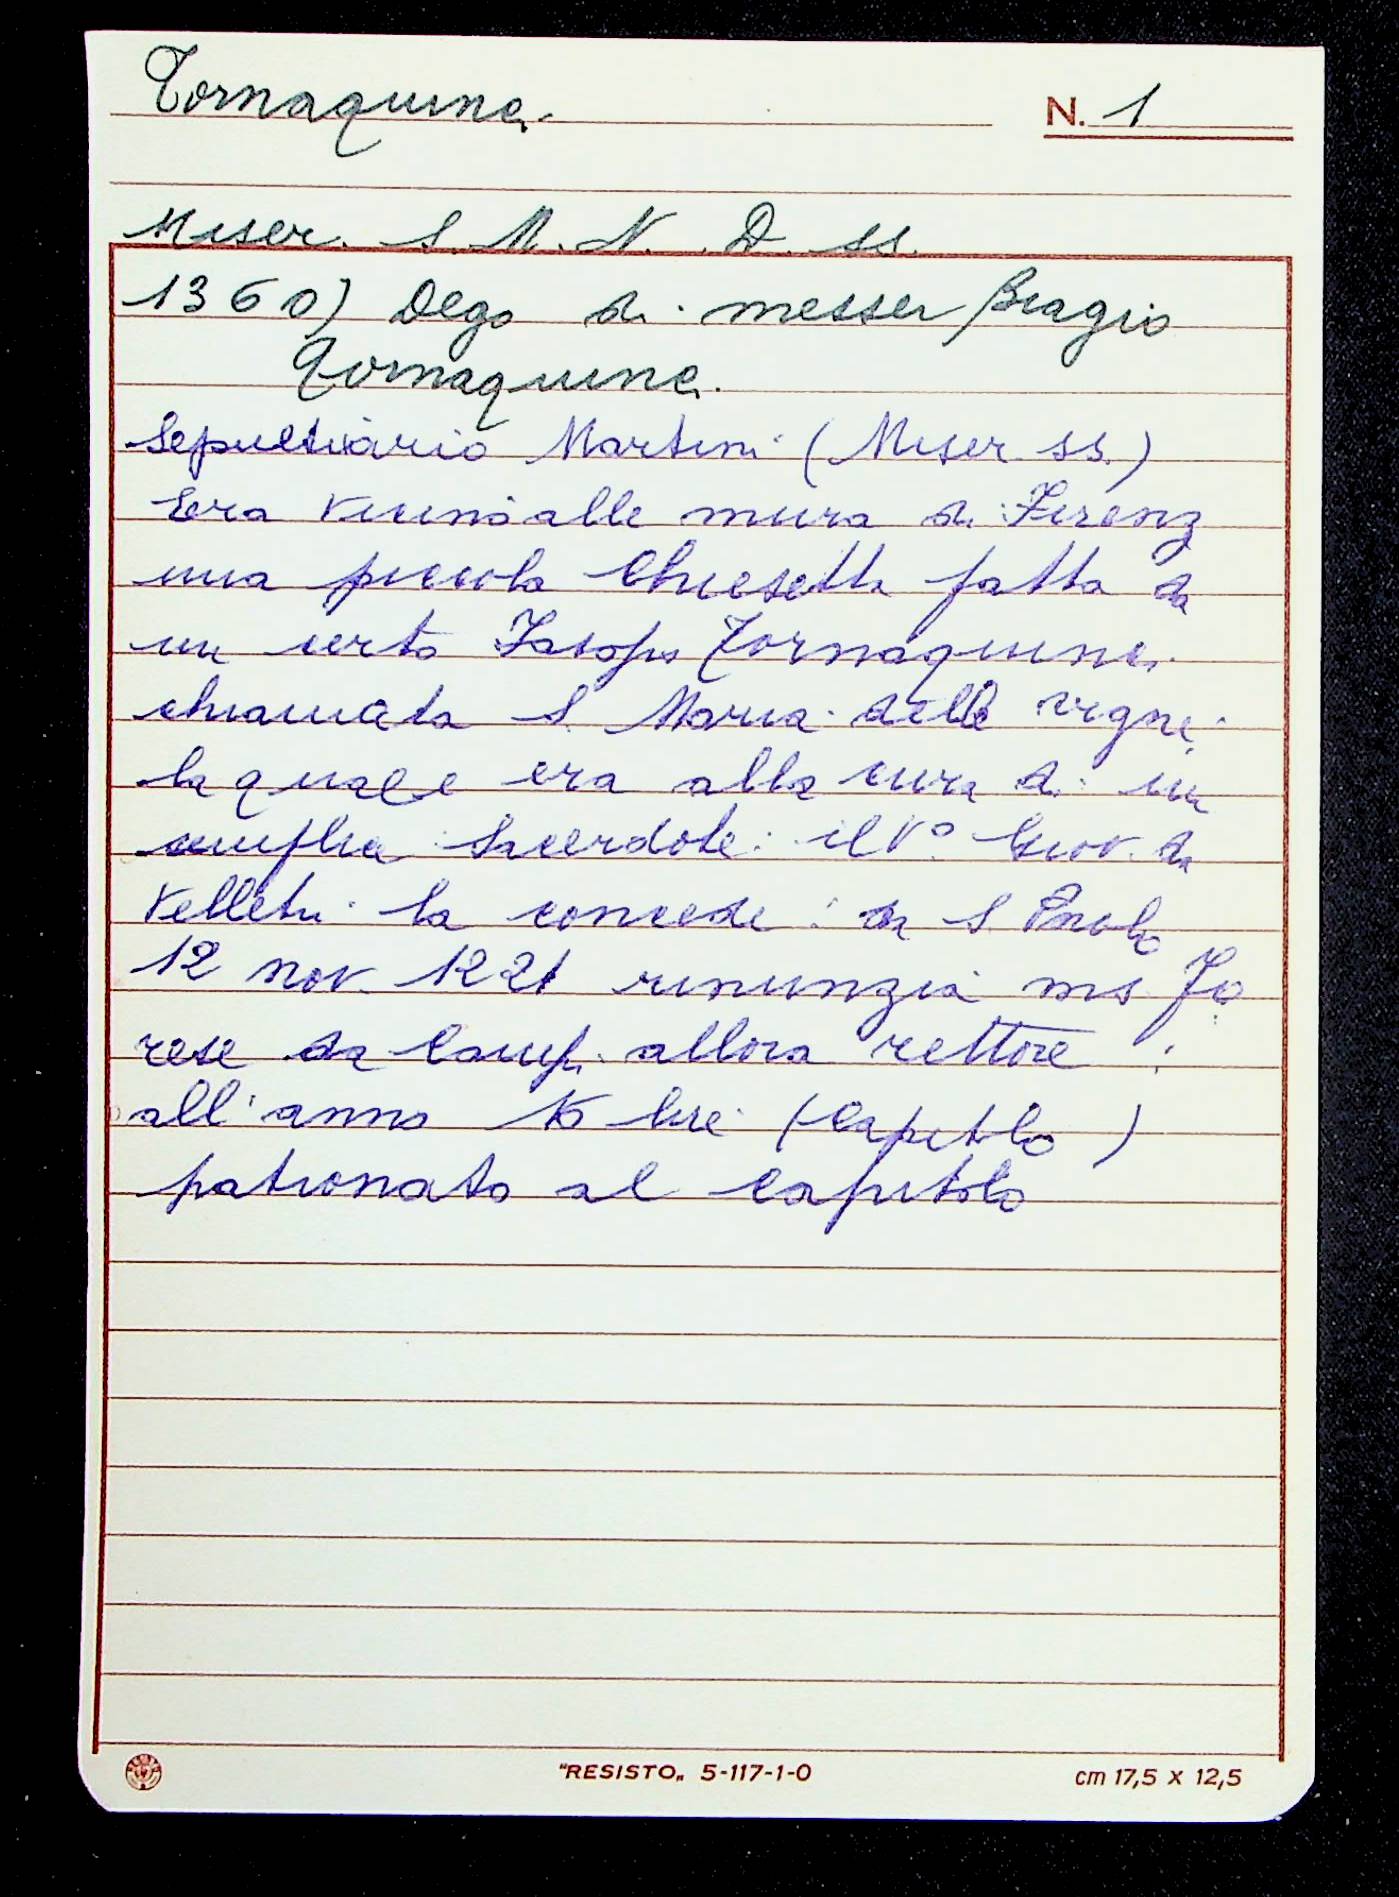 Tornaquinci
N. 1
Miser. S. M. N. D. ss.
1360) Dego di messer Biagio
Tornaquinci.
Sepultuario Martini (Miser ss.)
Era vicino alle mura di Firenz
una piccola Chiesetta fatta da
un certo Jacopo Tornaquinci
chiamata S Maria delle vigne
la quale era alla cura di un
semplice Sacerdote: il Vº Giov. da
Velletri la concede: da S Paolo
12 nov. 1221 rinunzia ms Fo
rese da Camp. allora rettore :
all'anno lire (Capitolo)
patronato al Capitolo
"RESISTO„ 5-117-1-0
cm 17,5 x 12,5